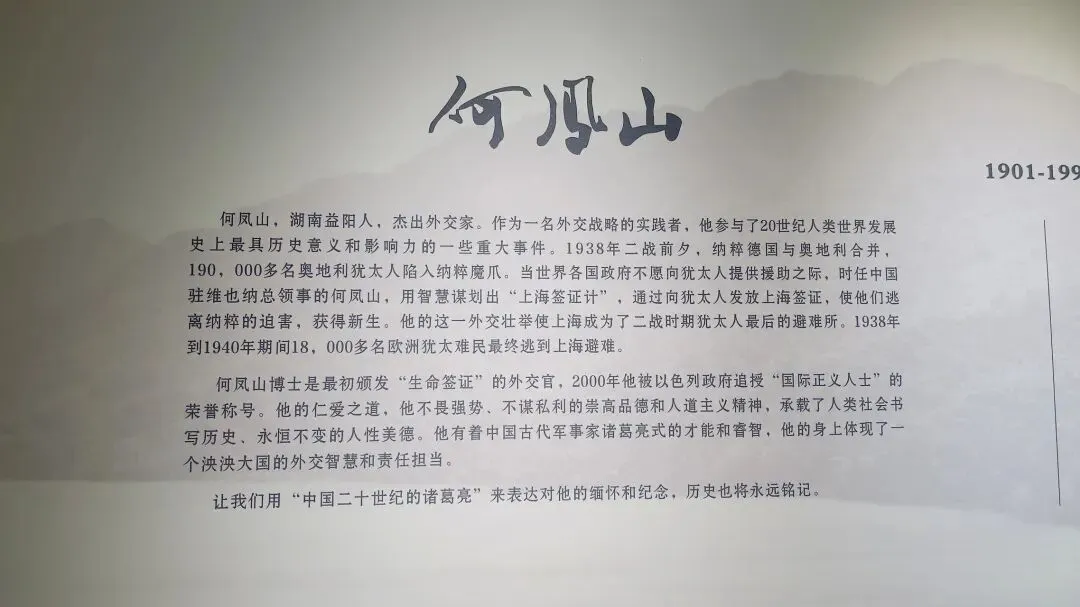 何凤山
1901-199
何凤山，湖南益阳人，杰出外交家。作为一名外交战略的实践者，他参与了20世纪人类世界发展
史上最具历史意义和影响力的一些重大事件。1938年二战前夕，纳粹德国与奥地利合并，
190，000多名奥地利犹太人陷入纳粹魔爪。当世界各国政府不愿向犹太人提供援助之际，时任中国
驻维也纳总领事的何凤山，用智慧谋划出“上海签证计”，通过向犹太人发放上海签证，使他们逃
离纳粹的迫害，获得新生。他的这一外交壮举使上海成为了二战时期犹太人最后的避难所。1938年
到1940年期间18，000多名欧洲犹太难民最终逃到上海避难。
何凤山博士是最初颁发“生命签证”的外交官，2000年他被以色列政府追授“国际正义人士”的
荣誉称号。他的仁爱之道，他不畏强势、不谋私利的崇高品德和人道主义精神，承载了人类社会书
写历史、永恒不变的人性美德。他有着中国古代军事家诸葛亮式的才能和睿智，他的身上体现了一
个泱泱大国的外交智慧和责任担当。
让我们用“中国二十世纪的诸葛亮”来表达对他的缅怀和纪念，历史也将永远铭记。